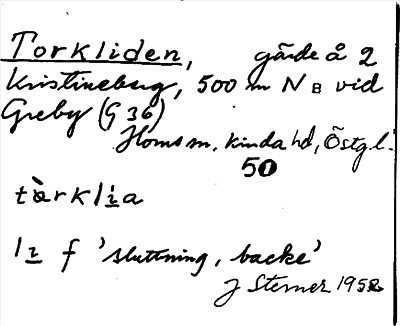 Torkliden, gärde å 2
Kristineberg, 500 m N B vid
Greby (G 36)
Horns sn, Kinda hd, Östg.l.
50
tàrklia
li f 'sluttning, backe'
J Sterner 1952